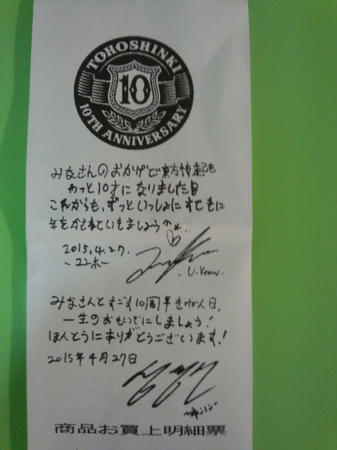 TOHOSHINKI
10
10TH ANNIVERSARY
みなさんのおかげで東方神起も
やっと10才になりました日
これからも、ずっといっしょにすてきに
年をかさねていきましょう
2015.4.27.
-ユンホ-
U-Know.
みなさんとすごす10周年きねん日、
一生のおもいでにしましょう!
ほんとうにありがとうございます!
2015年4月27日
商品お買上明細票